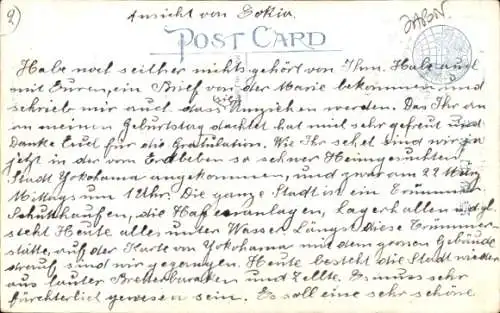 2)
Ansicht von Tokio.
JAPAN.
POST CARD
Habe noch seither nichts gehört von Ihm. Habe auch
mit Euren, ein Brief von der Marie bekommen und
schrieb mir auch dass Ihr Umziehen werden. Das Ihr an
an meinen Geburtstag dachtet hat mich sehr gefreut und
Danke Eud für die Gratulation. Wie Ihr sehet sind wir ja
jetzt in der vom Erdbeben so schwer Heimgesuchten
Stadt Yokohama angekommen, und zwar am 22 März
Mittags um 1 Uhr. Die ganze Stadt ist ein Trümmer
Schutthaufen, die Hafenanlagen, Lagerhallen u. dgl
steht Heute alles unter Wasser. Längst diese Trümmer-
stätte, auf der Karte von Yokohama mit dem grossen Gebäude
drauf sind wir gegangen. Heute besteht die Stadt wieder
aus lauter Bretterbaraken und Zellte. Es muss sehr
fürchterlich gewesen sein. Es soll eine sehr schöne